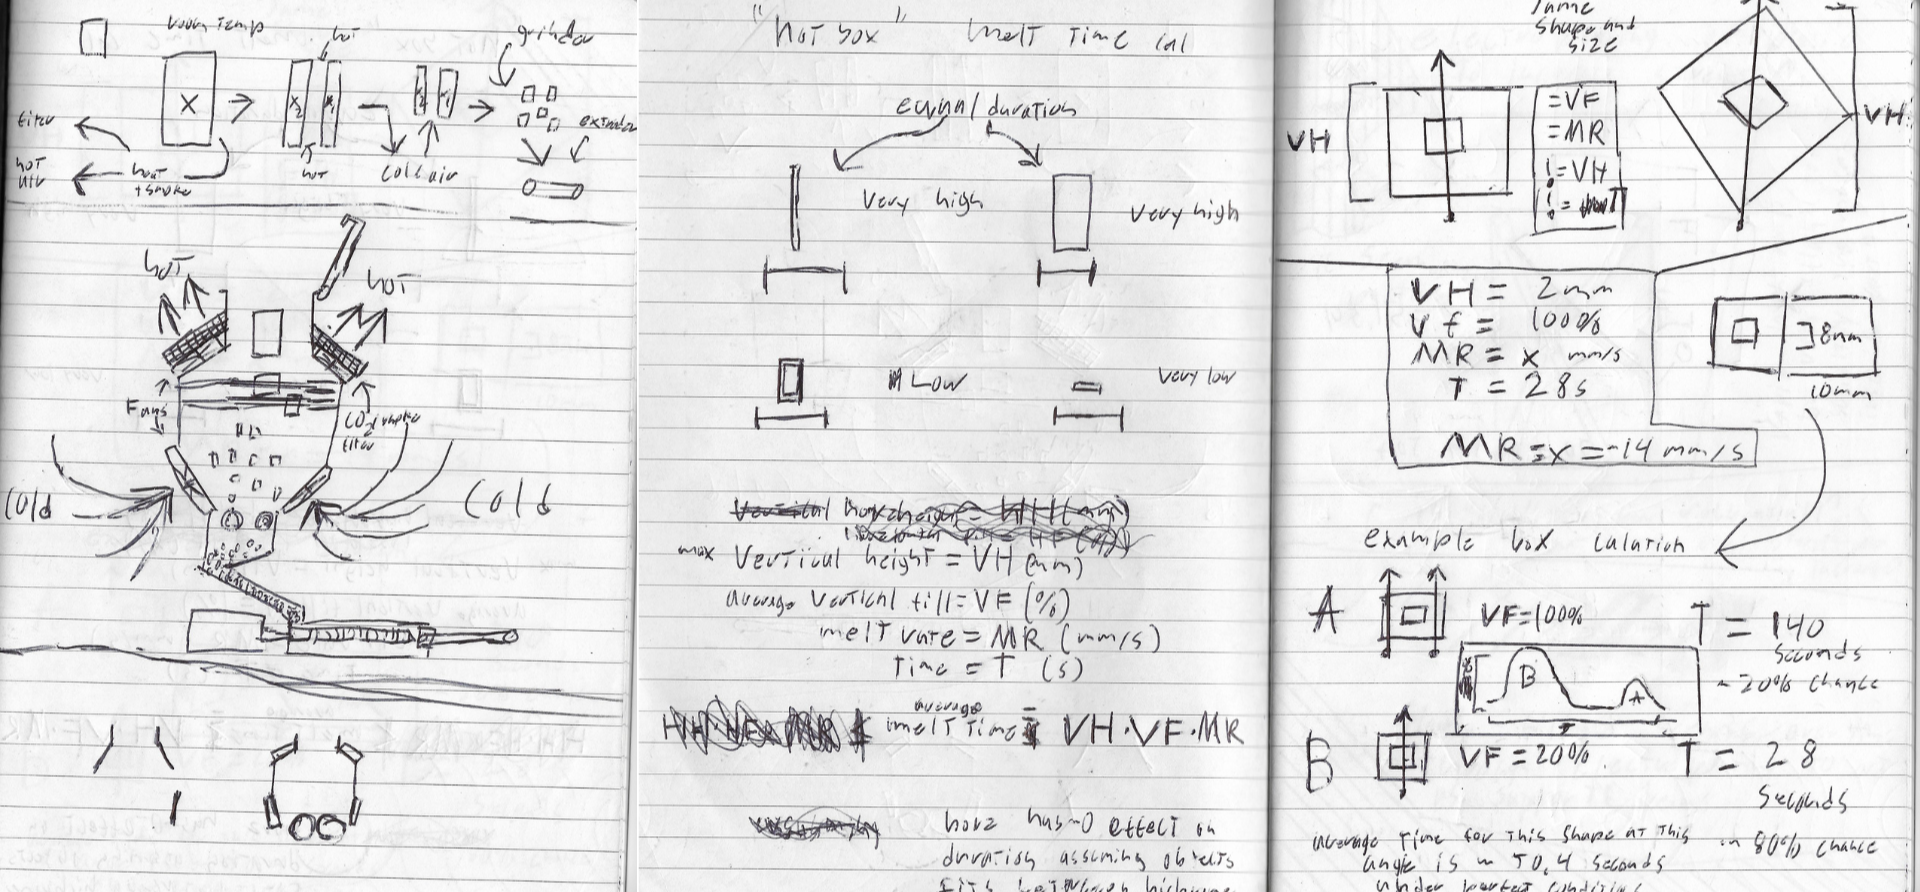 room temp
hot
grinder
X
X2
X1
X2
X1
extruder
hot
air
heat
+ smoke
hot
cold air
hot
hot
Fans
CO2/smoke
Cold
Cold
"hot box" melt time cal
equal duration
Very high
Very high
Low
very low
max Vertical height = VH (mm)
average vertical fill = VF (%)
melt rate = MR (mm/s)
time = T (s)
average
melt time = VH·VF·MR
horz has 0 effect on
duration assuming objects
same
shape and
size
VH
=VF
=MR
!=VH
!= T
VH
VH = 2mm
Vf = 100%
MR = x mm/s
T = 28s
MR = x = ~14 mm/s
8mm
10mm
example box
A
VF=100%
T = 140
Seconds
~ 20% chance
B
A
B
VF = 20%
T = 28
Seconds
~ 80% chance
average time for this shape at this
angle is ~ 50,4 seconds